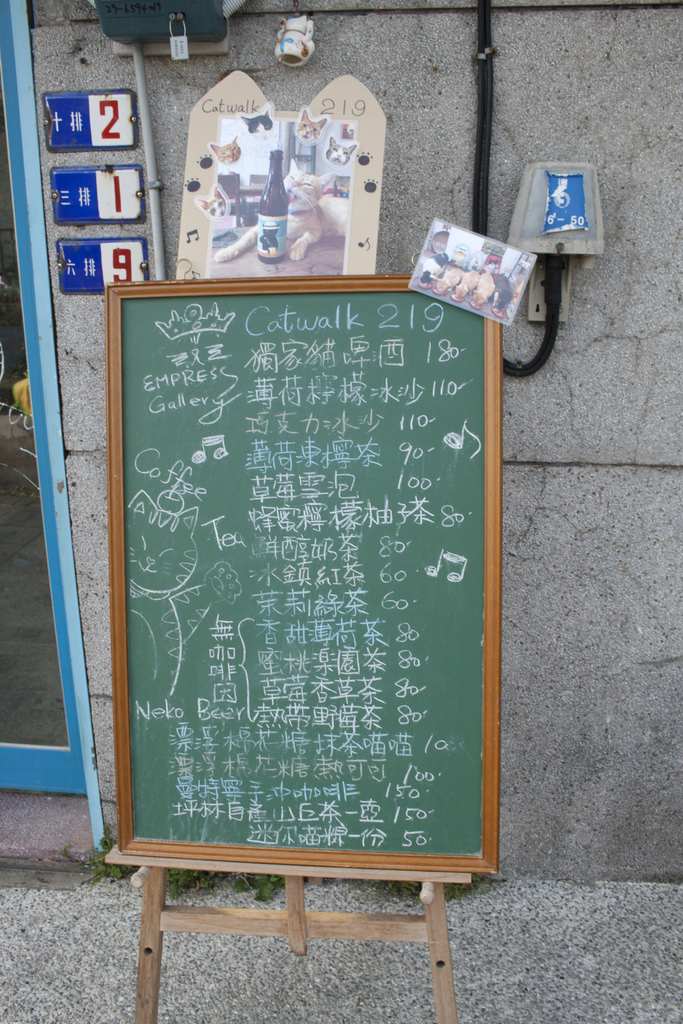 29-6594-19
十排 2
三排 1
六排 9
Catwalk 219
6-50
Catwalk 219
EMPRESS
Gallery
Coffee
Tea
Neko Beer
獨家貓啤酒 180.
薄荷檸檬冰沙 110.
巧克力冰沙 110.
薄荷凍檸茶 90.
草莓雪泡 100.
蜂蜜檸檬柚子茶 80.
鮮醇奶茶 80.
冰鎮紅茶 60.
茉莉綠茶 60.
無咖啡因
香甜薄荷茶 80.
蜜桃樂園茶 80.
草莓香草茶 80.
熱帶野莓茶 80.
漂浮棉花糖抹茶喵喵
漂浮棉花糖熱可可 100.
曼特寧手沖咖啡 150.
坪林自產小丘茶一壺 150.
迷你喵粿一份 50.